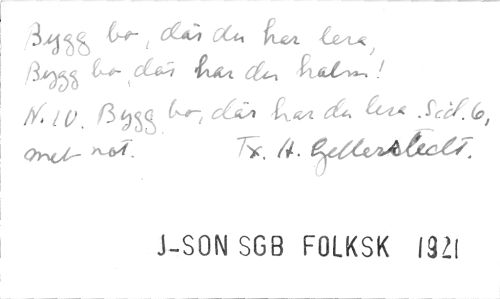 Bygg bo, där du har lera,
Bygg bo, där har du halm!
N. 10. Bygg bo, där har du lera. Sid. 6,
met not. Tx. H. Gellerstedt.
J-SON SGB FOLKSK 1921